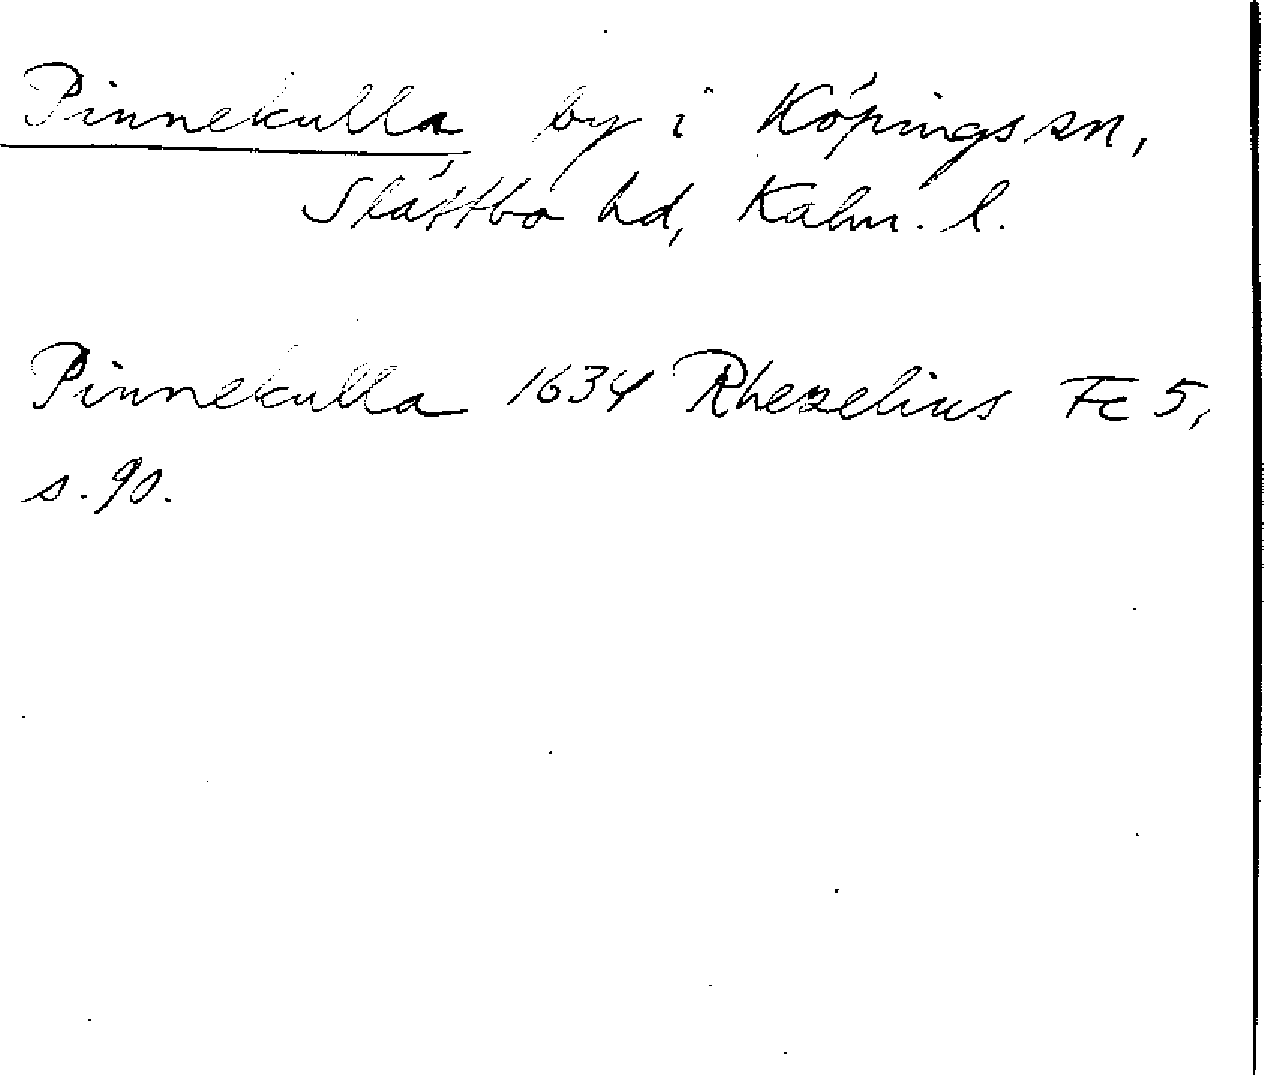 Pinnekulla by i Köpings sn,
Slättbo hd, Kalm. l.
Pinnekulla 1634 Rhezelius Fc 5,
s. 90.